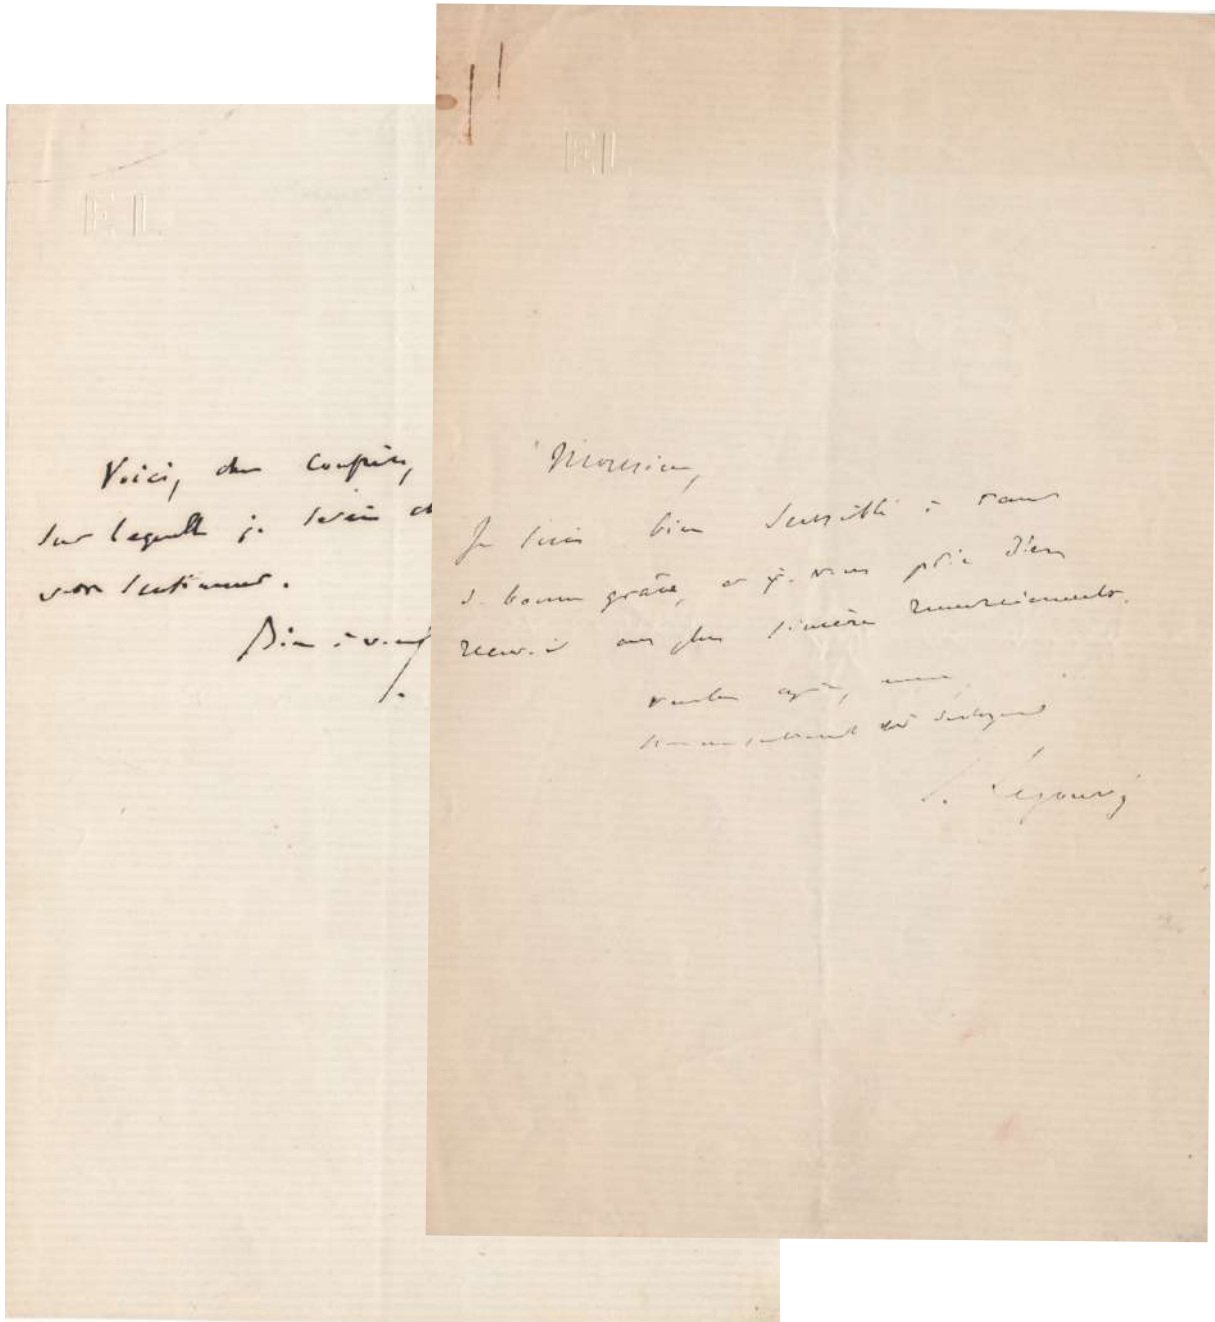 E.L.
Voici, cher Confrère,
sur laquelle je serais
votre sentiment.
Bien à vous
E.L.
Monsieur,
Je suis bien sensible à tant
de bonne grâce, et je vous prie d'en
recevoir mes plus sincères remerciements.
Veuillez agréer,
sentiments
E. Legouvé